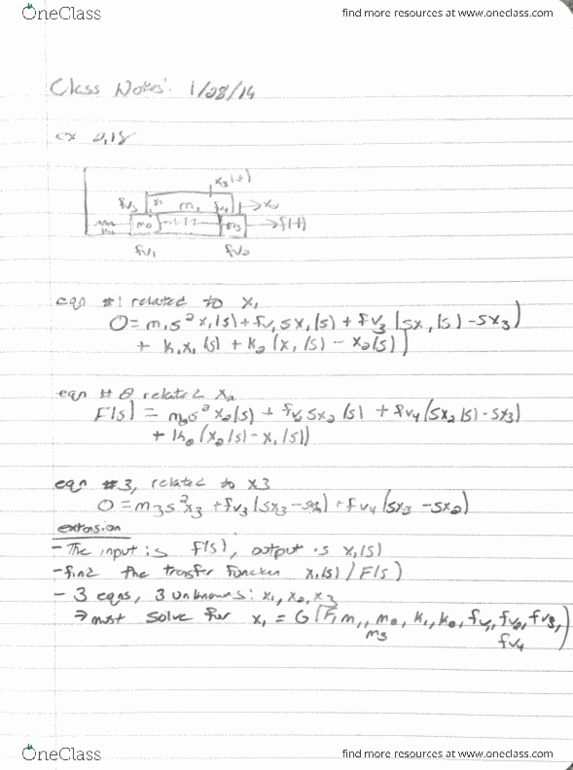 OneClass
find more resources at www.oneclass.com
Class Notes: 1/28/14
ex 2.18
x3(t)
fv3 m3 fv4 → x2
→ f(t)
fv1 fv2
eqn #1 related to x1
0 = m1s²x1(s) + fv1sx1(s) + fv3(sx1(s) - sx3)
+ k1x1(s) + k2(x1(s) - x2(s))
eqn #2 related x2
F(s) = m2s²x2(s) + fv2sx2(s) + fv4(sx2(s) - sx3)
+ k2(x2(s) - x1(s))
eqn #3, related to x3
0 = m3s²x3 + fv3(sx3 - sx1) + fv4(sx3 - sx2)
extension
- The input is F(s), output is x1(s)
- find the transfer function x1(s)/F(s)
- 3 eqns, 3 unknowns: x1, x2, x3
⇒ must solve for x1 = G(F, m1, m2, k1, k2, fv1, fv2, fv3,
m3 fv4
OneClass
find more resources at www.oneclass.com